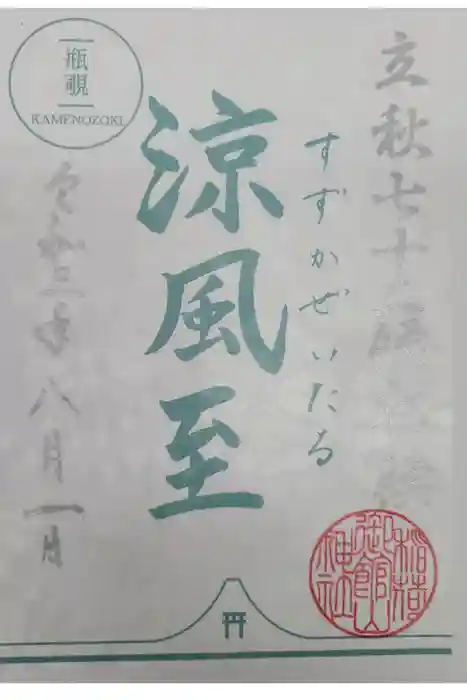 立秋七十
すずかぜいたる
涼風至
瓶覗
KAMENOZOKI
令和三年八月一日
御館山
稲荷
神社